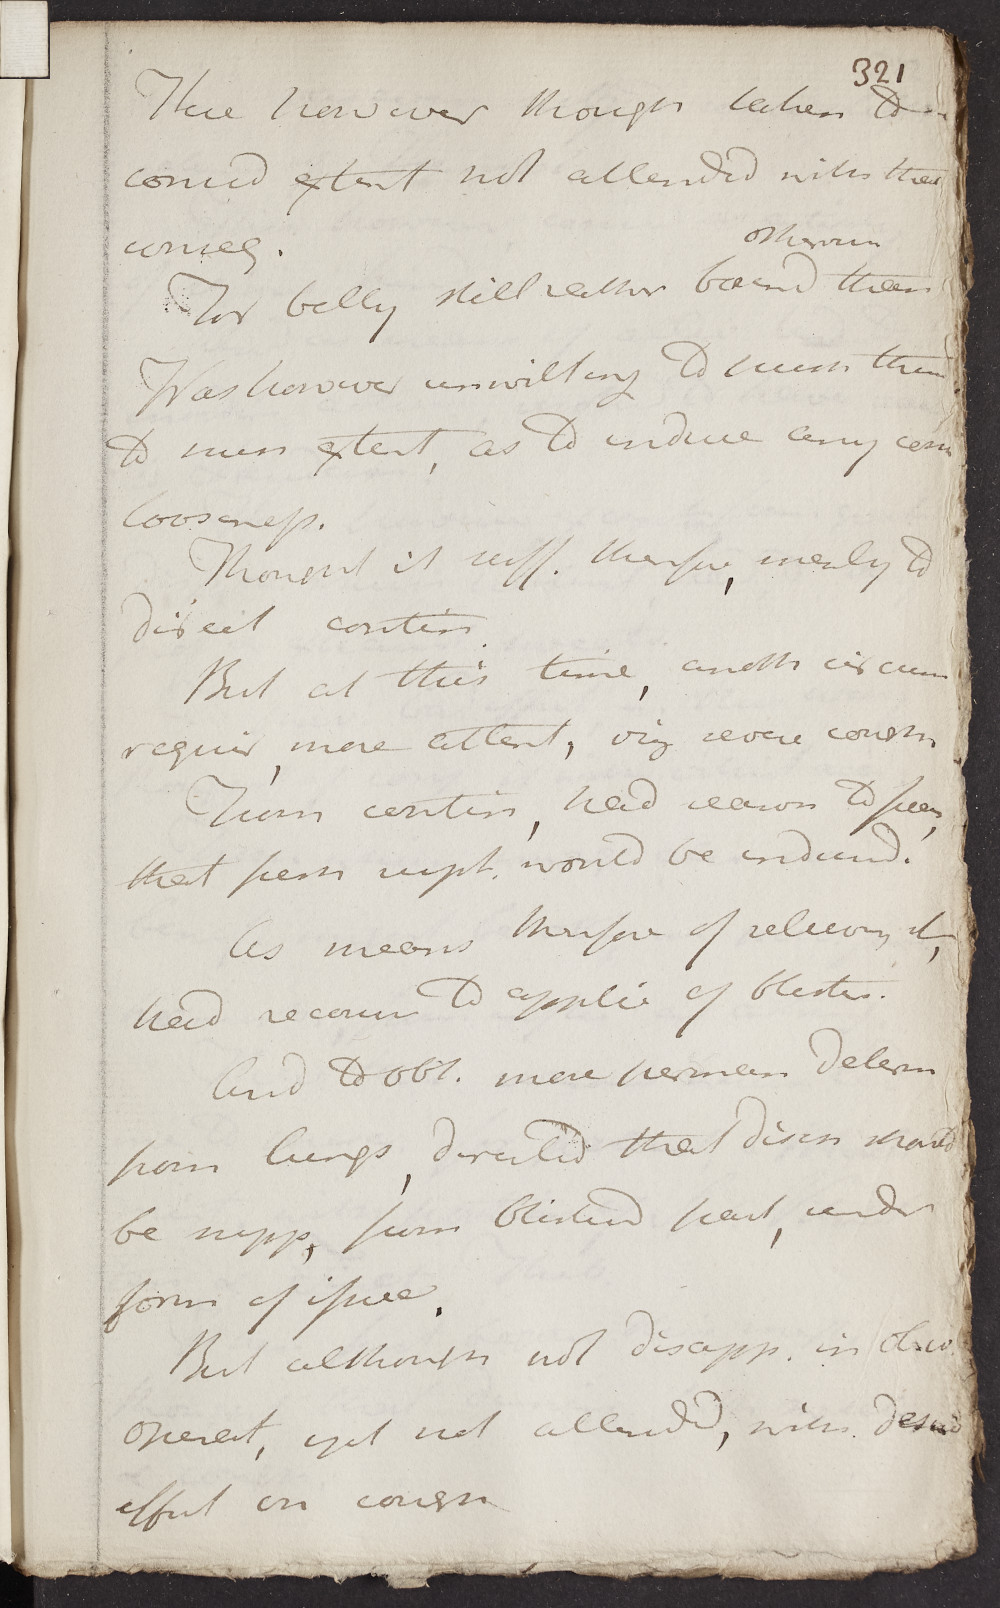 321
These however though taken to
consid extent not attended with that
conseq.
otherwise
For belly still rather bound than
Was however unwilling to push them
to such extent, as to induce any
looseness.
Thought it suff. therefore, merely to
direct contin
But at this time, anothr circum
requir, more attent, viz severe cough
From contin, had reason to fear,
that fresh rupt. would be induced.
As means therefore of relieving it,
had recour to applic of blister.
And to obt. more perman determ
from lungs, directed that disch should
be supp, from blistered part, under
form of issue.
But although not disapp. in
operat, yet not attended, with desired
effect on cough